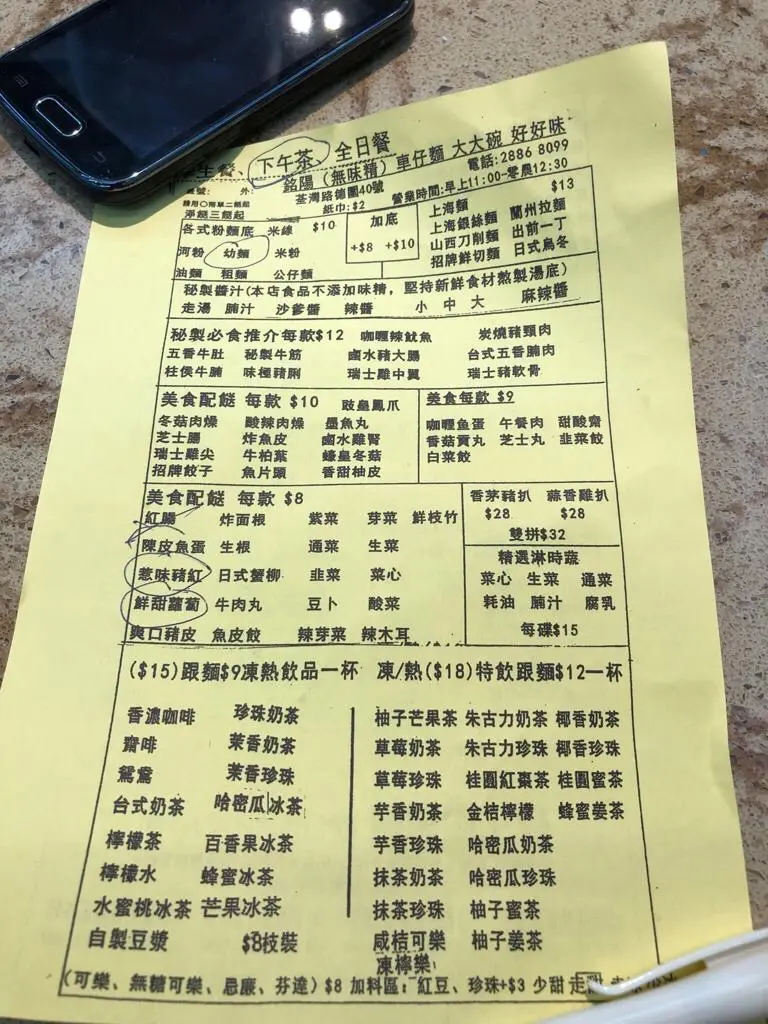 生餐、下午茶、全日餐
銘陽（無味精）車仔麵 大大碗 好好味
號: 外: 荃灣路德圍40號 電話:2886 8099
紙巾:$2 營業時間:早上11:00-零晨12:30
淨餸三餸起
各式粉麵底 米線 $10
河粉 幼麵 米粉
油麵 粗麵 公仔麵
加底
+$8 +$10
上海麵 $13
上海銀絲麵 蘭州拉麵
山西刀削麵 出前一丁
招牌鮮切麵 日式烏冬
秘製醬汁(本店食品不添加味精，堅持新鮮食材熬製湯底)
走湯 腩汁 沙爹醬 辣醬 小 中 大 麻辣醬
秘製必食推介每款$12 咖喱辣魷魚 炭燒豬頸肉
五香牛肚 秘製牛筋 鹵水豬大腸 台式五香腩肉
柱侯牛腩 味極豬脷 瑞士雞中翼 瑞士豬軟骨
美食配餸 每款 $10 豉皇鳳爪
冬菇肉燥 酸辣肉燥 墨魚丸
芝士腸 炸魚皮 鹵水雞腎
瑞士雞尖 牛柏葉 蠔皇冬菇
招牌餃子 魚片頭 香甜柚皮
美食每款 $9
咖喱魚蛋 午餐肉 甜酸齋
香菇貢丸 芝士丸 韭菜餃
白菜餃
美食配餸 每款 $8
紅腸 炸面根 紫菜 芽菜 鮮枝竹
陳皮魚蛋 生根 通菜 生菜
惹味豬紅 日式蟹柳 韭菜 菜心
鮮甜蘿蔔 牛肉丸 豆卜 酸菜
爽口豬皮 魚皮餃 辣芽菜 辣木耳
香茅豬扒 蒜香雞扒
$28 $28
雙拼$32
精選淋時蔬
菜心 生菜 通菜
耗油 腩汁 腐乳
每碟$15
($15)跟麵$9凍熱飲品一杯 凍/熱($18)特飲跟麵$12一杯
香濃咖啡 珍珠奶茶
齋啡 茉香奶茶
鴛鴦 茉香珍珠
台式奶茶 哈密瓜冰茶
檸檬茶 百香果冰茶
檸檬水 蜂蜜冰茶
水蜜桃冰茶 芒果冰茶
自製豆漿 $8枝裝
柚子芒果茶 朱古力奶茶 椰香奶茶
草莓奶茶 朱古力珍珠 椰香珍珠
草莓珍珠 桂圓紅棗茶 桂圓蜜茶
芋香奶茶 金桔檸檬 蜂蜜姜茶
芋香珍珠 哈密瓜奶茶
抹茶奶茶 哈密瓜珍珠
抹茶珍珠 柚子蜜茶
咸桔可樂 柚子姜茶
凍檸樂
(可樂、無糖可樂、忌廉、芬達) $8 加料區: 紅豆、珍珠+$3 少甜 走甜